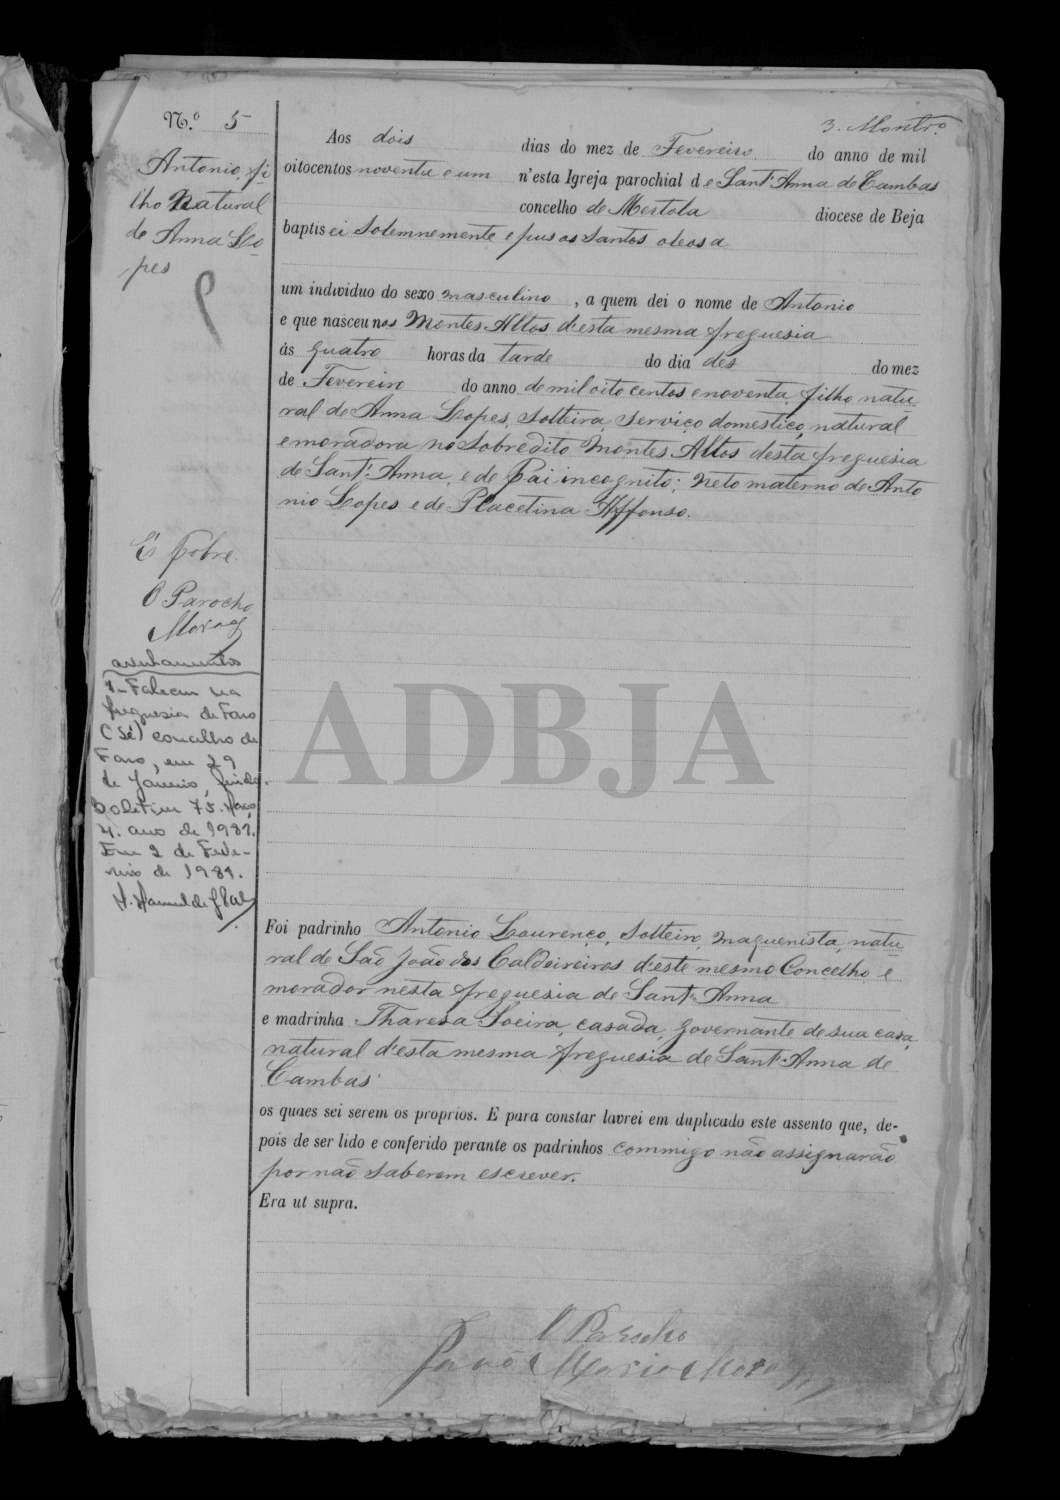 N.º 5
3. Montr.º
Antonio, fi-
lho Natural
de Anna Lo-
pes
Aos dois dias do mez de Fevereiro do anno de mil
oitocentos noventa e um n'esta Igreja parochial de Sant'Anna de Cambas
concelho de Mertola diocese de Beja
baptisei Solemnemente e pus os Santos oleos a
um individuo do sexo masculino, a quem dei o nome de Antonio
e que nasceu nos Montes Altos d'esta mesma freguesia
ás quatro horas da tarde do dia des do mez
de Fevereiro do anno de mil oito centos e noventa, filho natu-
ral de Anna Lopes, Solteira, Serviço domestico, natural
e moradora no Sobredito Montes Altos desta freguesia
de Sant'Anna, e de Pai incognito; Neto materno de Anto
nio Lopes e de Placetina Affonso.
É Pobre.
O Parocho
Moraes
averbamentos
1-Faleceu na
freguesia de Faro
(Sé) concelho de
Faro, em 29
de Janeiro, findo.
Boletim 75. Maço
4. ano de 1981.
Em 2 de Feve-
reiro de 1981.
Foi padrinho Antonio Lourenço, Solteiro, maquenista, natu-
ral de São João dos Caldeireiros d'este mesmo Concelho e
morador nesta freguesia de Sant'Anna
e madrinha Thareza Soeira, casada, governante de sua casa,
natural d'esta mesma freguesia de Sant'Anna de
Cambas
os quaes sei serem os proprios. E para constar lavrei em duplicado este assento que, de-
pois de ser lido e conferido perante os padrinhos commigo não assignarão
por não saberem escrever.
Era ut supra.
O Parocho
Maria Moraes
ADBJA